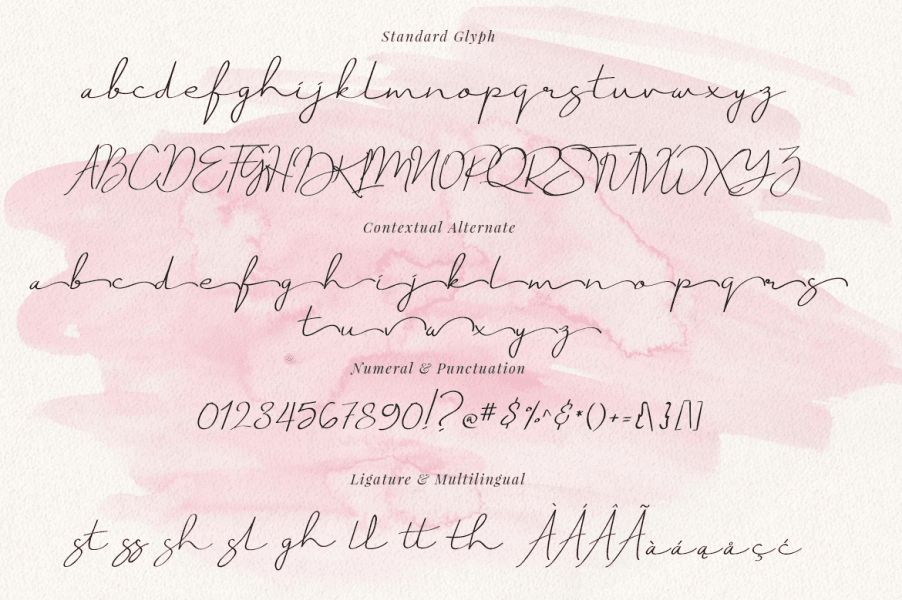 Standard Glyph
abcdefghijklmnopqrstuvwxyz
ABCDEFGHIJKLMNOPQRSTUVWXYZ
Contextual Alternate
abcdefghijklmnopqrs
tuvwxyz
Numeral & Punctuation
01234567890!?@#$%^&*()+={\}[/|]
Ligature & Multilingual
st ss sh sl gh ll tt th ÀÁÂÃàáąåçć